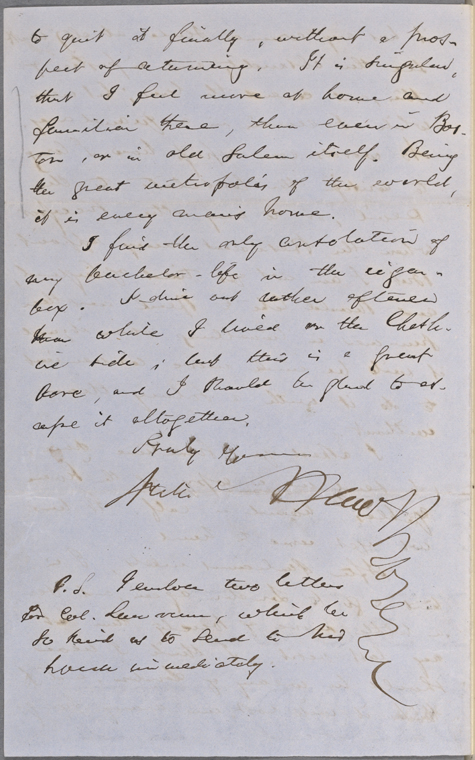 to quit it finally, without a pros-
pect of returning. It is singular,
that I feel more at home and
familiar there, than even in Bos-
ton, or in old Salem itself. Being
the great metropolis of the world,
it is every man's home.
I find the only consolation of
my bachelor-life in the cigar-
box. I dine out rather oftener
than while I lived on the Chesh-
ire side; but this is a great
bore, and I should be glad to es-
cape it altogether.
Truly Yours
Nath Hawthorne
P.S. I enclose two letters
for Col. Lawrence, which be
so kind as to send to his
house immediately.